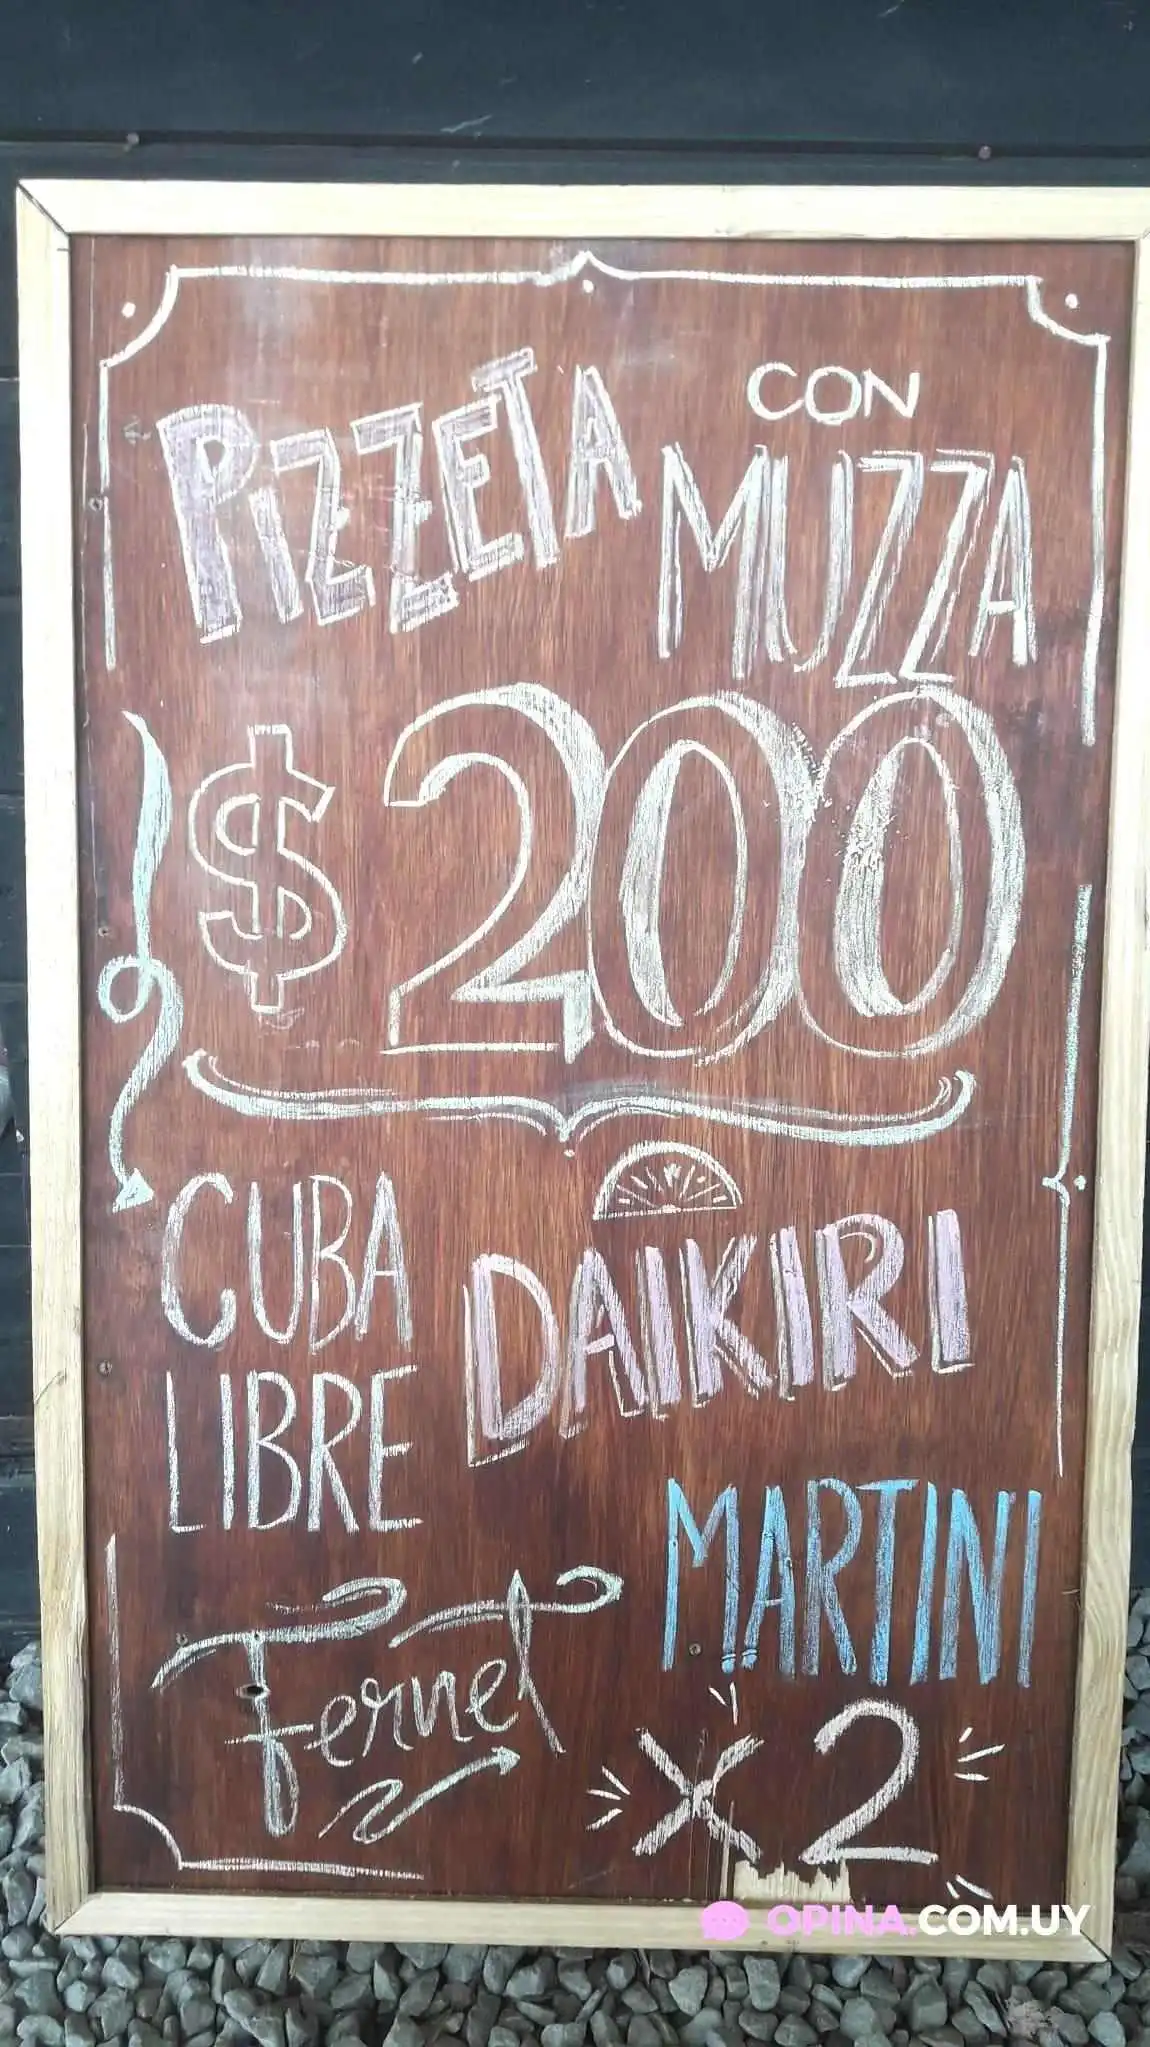 PIZZETA CON
MUZZA
$ 200
CUBA
LIBRE
DAIKIRI
Fernet
MARTINI
X2
OPINA.COM.UY